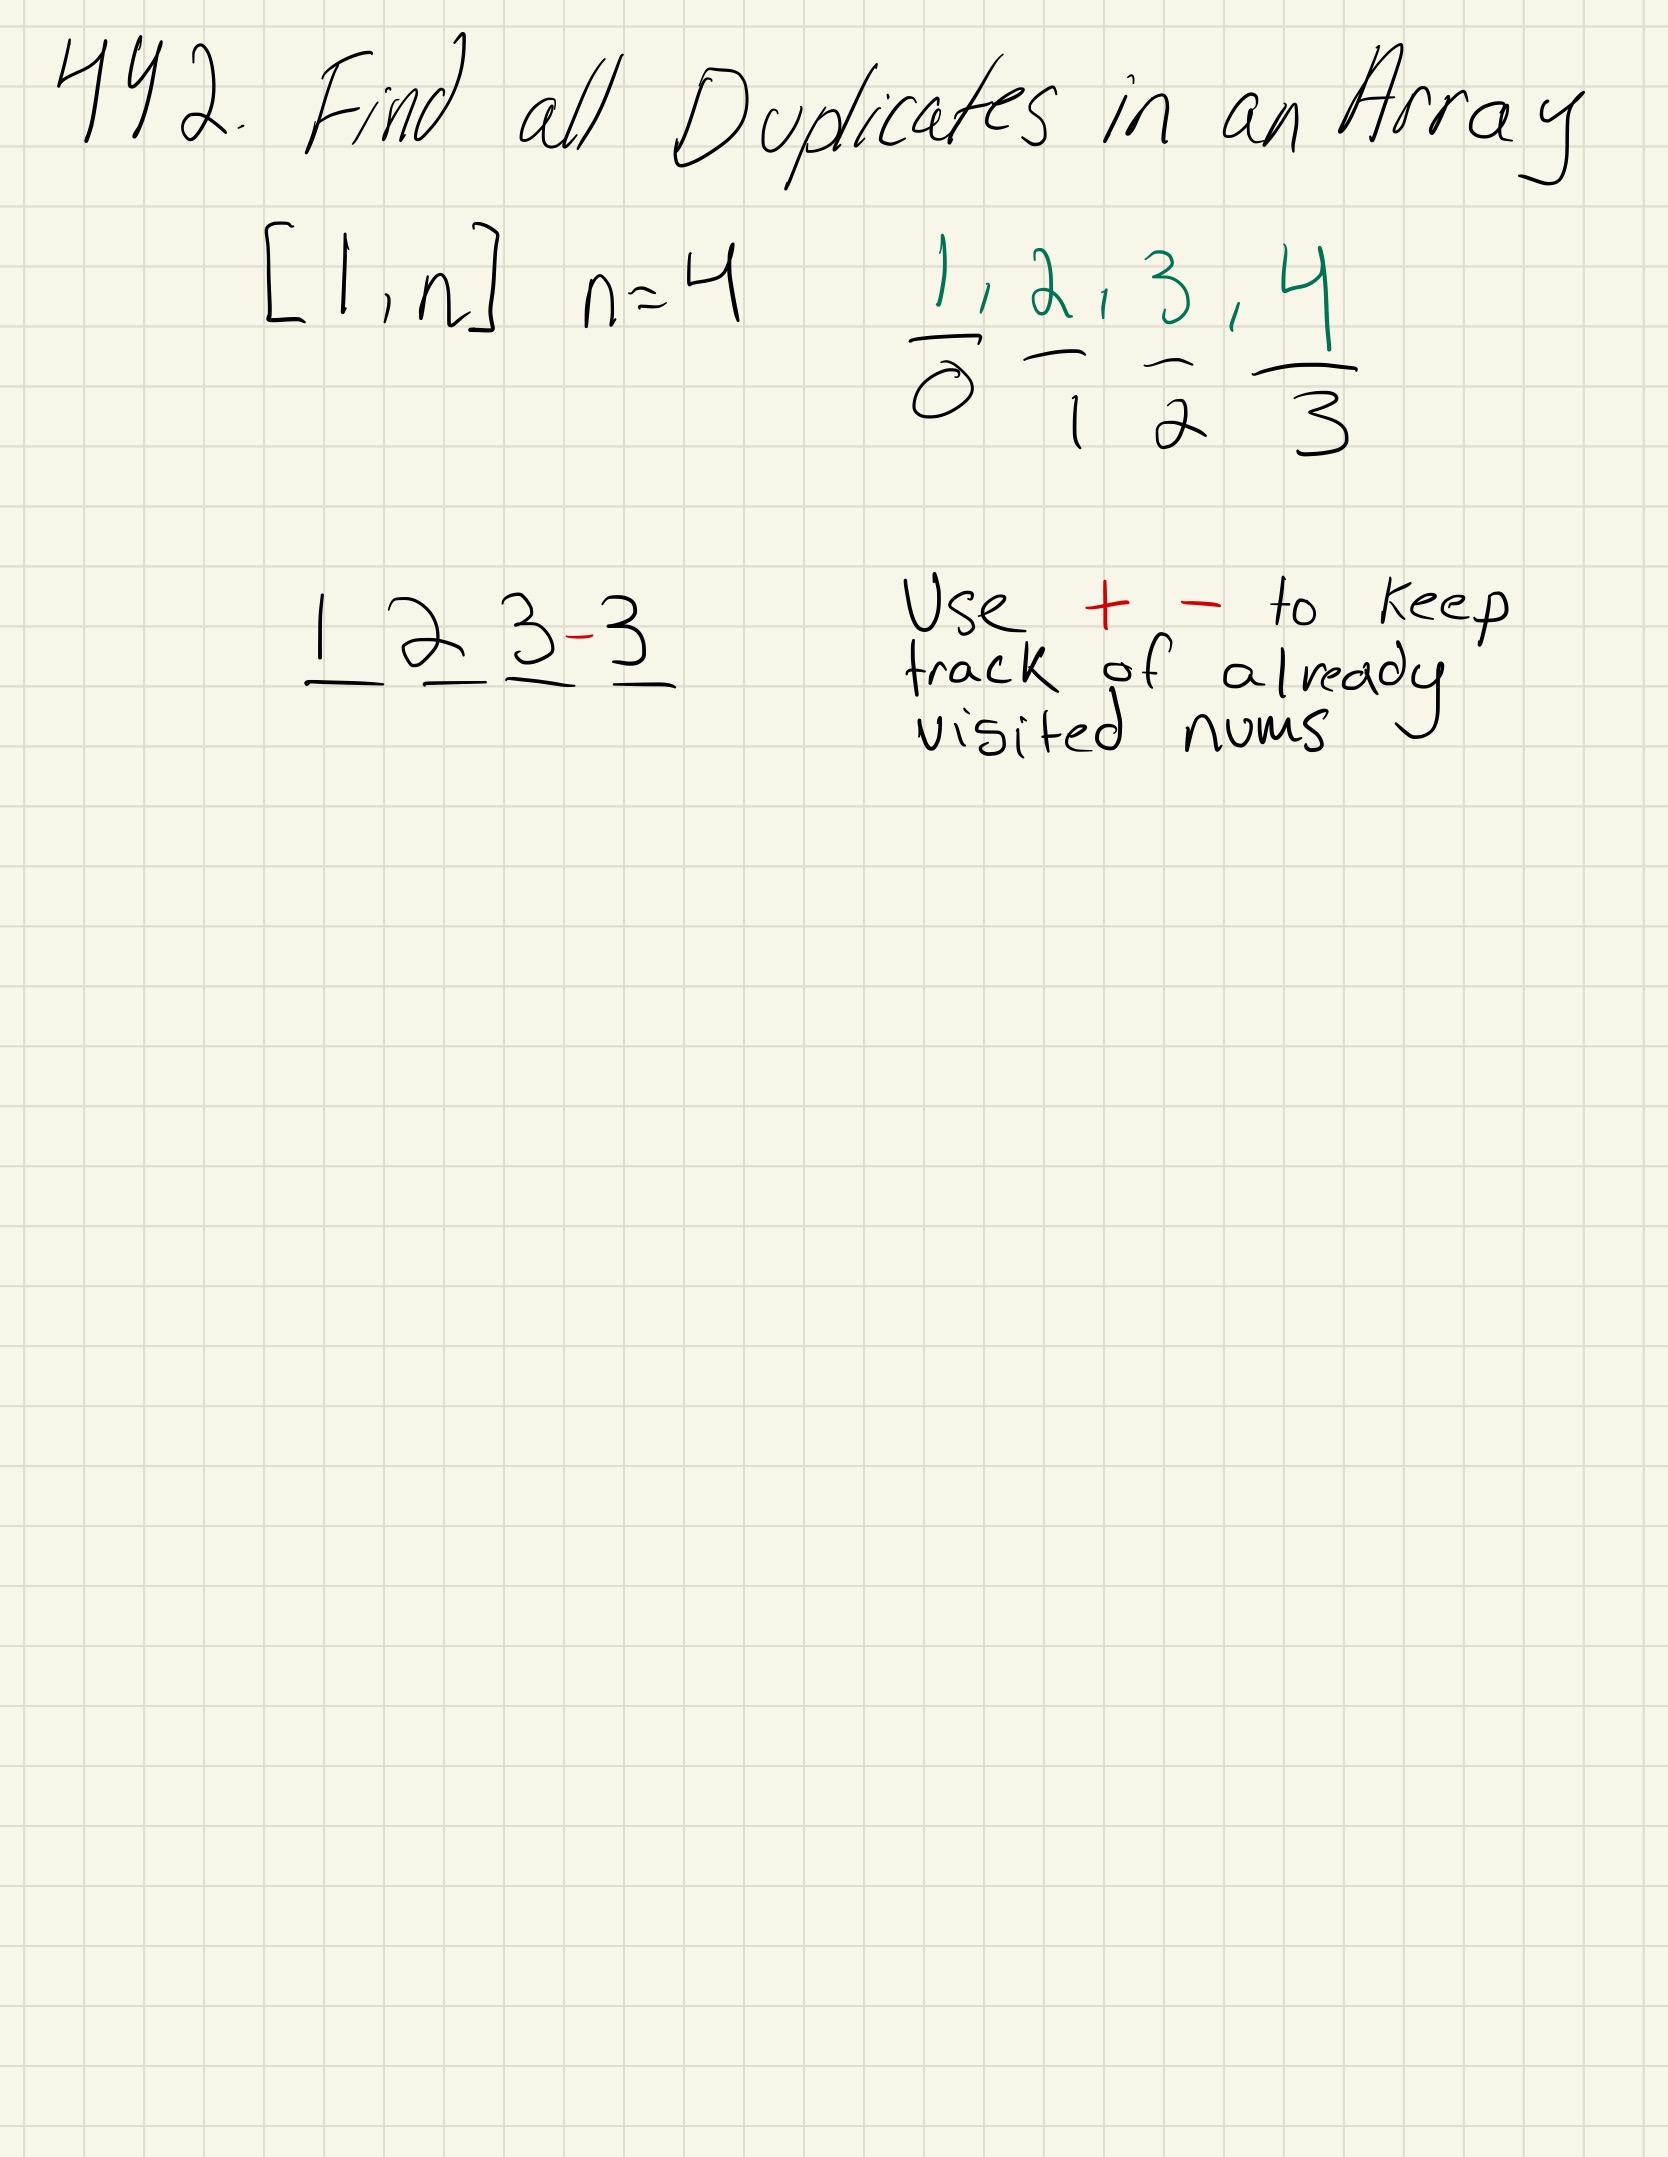 442. Find all Duplicates in an Array
[1, n] n = 4 1, 2, 3, 4
0 1 2 3
1 2 3 -3 Use + - to keep
track of already
visited nums